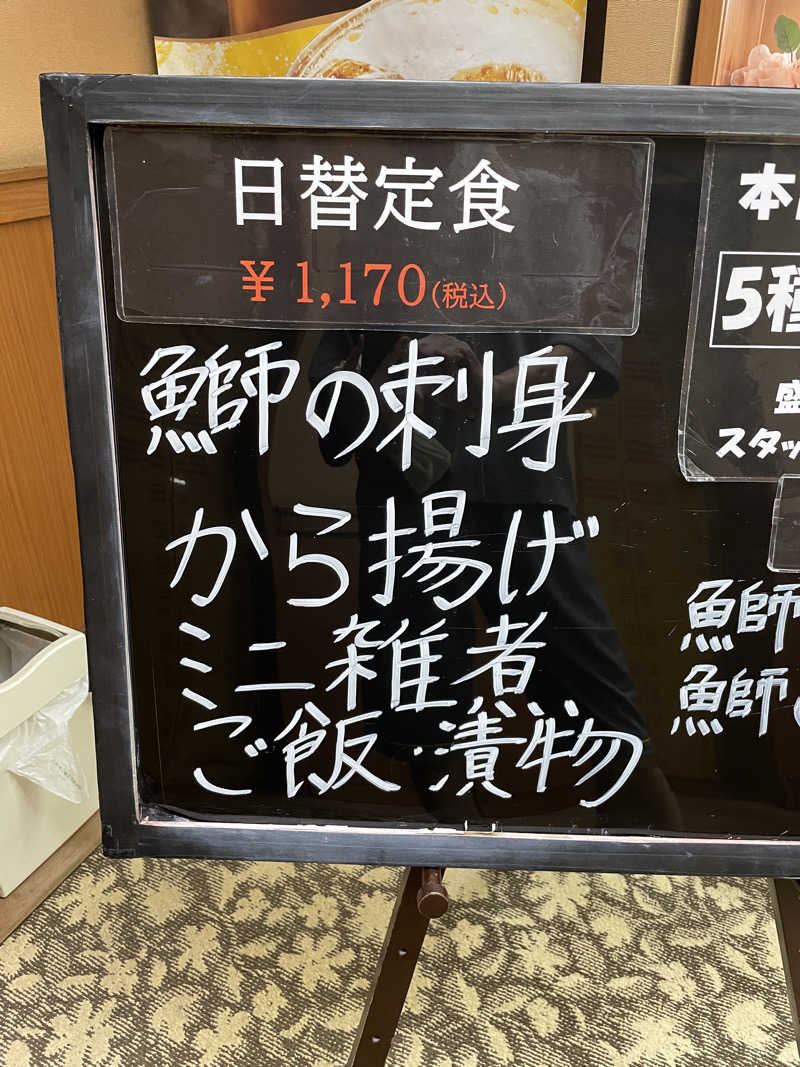 日替定食
¥ 1,170(税込)
鰤の刺身
から揚げ
ミニ雑煮
ご飯・漬物
本
5種
盛
スタッ
鰤
鰤